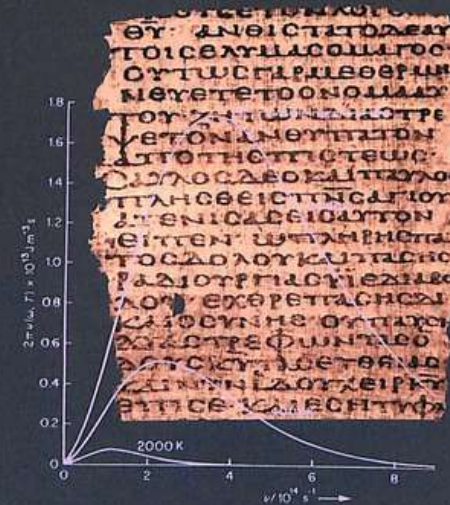 ΘΥ ΑΝΘΙCΤΑΤΟΔΕΑΥ
ΤΟΙCΕΛΥΜΑCΟΜΑΓΟC
ΟΥΤΩCΓΑΡΜΕΘΕΡΜΗ
ΝΕΥΕΤΕΤΟΟΝΟΜΑΑΥ
ΤΟΥ ΤΡΕ
ΨΕΤΟΝΑΝΘΥΠΑΤΟΝ
ΑΠΟΤΗCΠΙCΤΕΩC·
CΑΥΛΟCΔΕΟΚΑΙΠΑΥΛΟ
ΠΛΗCΘΕΙCΠΝ̅CΑΓΙΟΥ
ΑΤΕΝΙCΑCΕΙCΑΥΤΟΝ
ΕΙΠΕΝ ΩΠΛΗΡΗCΠΑ
ΤΟCΔΟΛΟΥΚΑΙΠΑCΗC
ΡΑΔΙΟΥΡΓΙΑCΥΙΕΔΙΑΒ
ΛΟΥ ΕΧΘΡΕΠΑCΗCΔΙ
ΚΑΙΟCΥΝΗC ΟΥΠΑΥC
ΔΙΑCΤΡΕΦΩΝΤΑCΟ
ΚΑΙΝΥΝΙΔΟΥΧΕΙΡΚΥ
ΕΠΙCΕΚΑΙΕCΗΤΥΦΛ
1.8
1.6
1.4
1.2
1.0
0.8
0.6
0.4
0.2
0
2000 K
0 2 4 6 8
ν/10¹⁴ s⁻¹